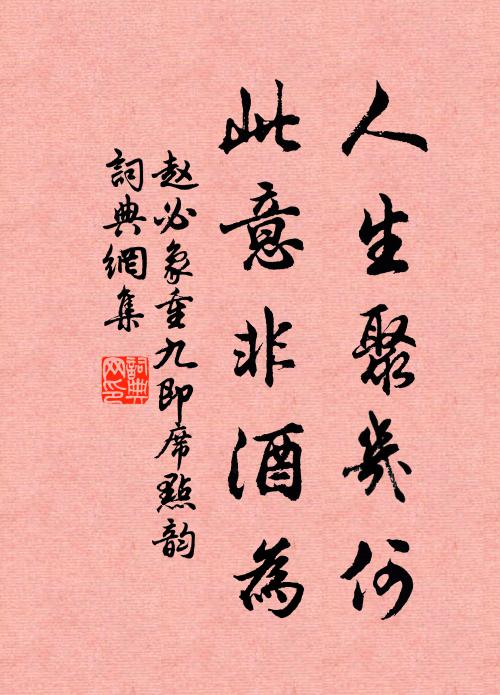 人生聚幾何
此意非酒為
赵必象重九即席點韵
詞典網集
詞典網印